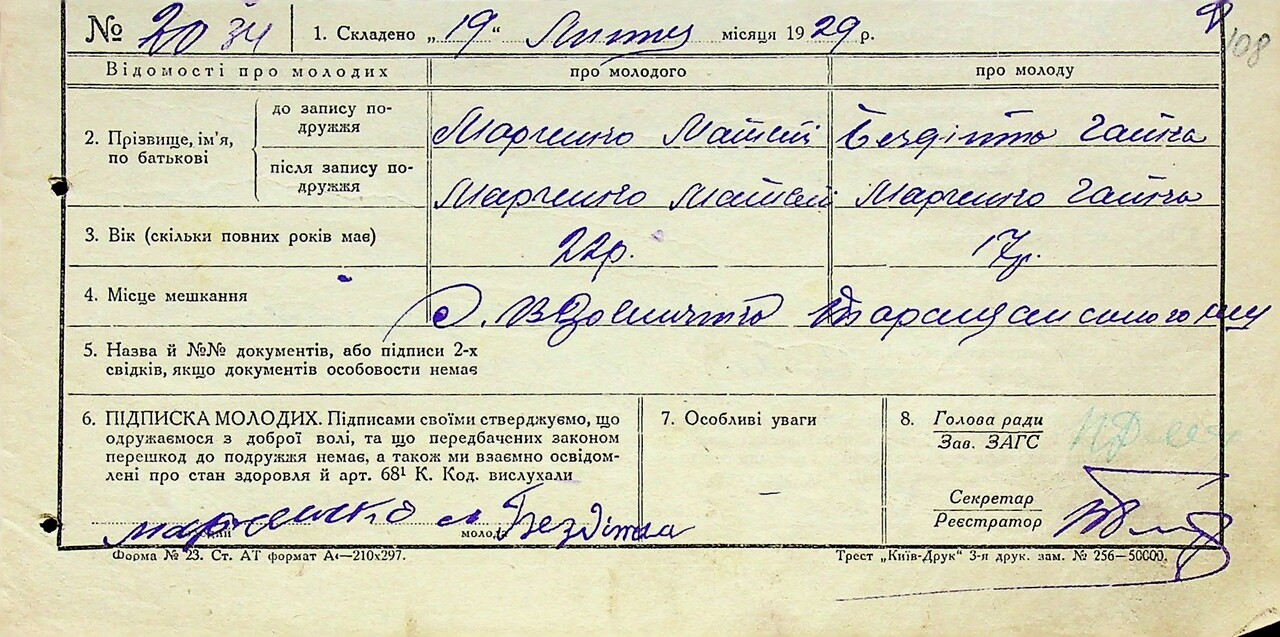 № 20 34 1. Складено „19“ Лютня місяця 1929 р.
108
Відомості про молодих про молодого про молоду
2. Прізвище, ім'я, по батькові
до запису по-
дружжя
Марченко Матвій Бездітна Ганна
після запису по-
дружжя
Марченко Матвій Марченко Ганна
3. Вік (скільки повних років має) 22р. 17р.
4. Місце мешкання с. Таращанського
5. Назва й №№ документів, або підписи 2-х
свідків, якщо документів особовости немає
6. ПІДПИСКА МОЛОДИХ. Підписами своїми стверджуємо, що
одружаємося з доброї волі, та що передбачених законом
перешкод до подружжя немає, а також ми взаємно освідом-
лені про стан здоровля й арт. 68¹ К. Код. вислухали
марченко м Бездітна
молода
7. Особливі уваги
—
8. Голова ради
Зав. ЗАГС
Секретар
Реєстратор
Форма № 23. Ст. АТ формат А₄—210х297. Трест „Київ-Друк“ 3-я друк. зам. № 256—50000.